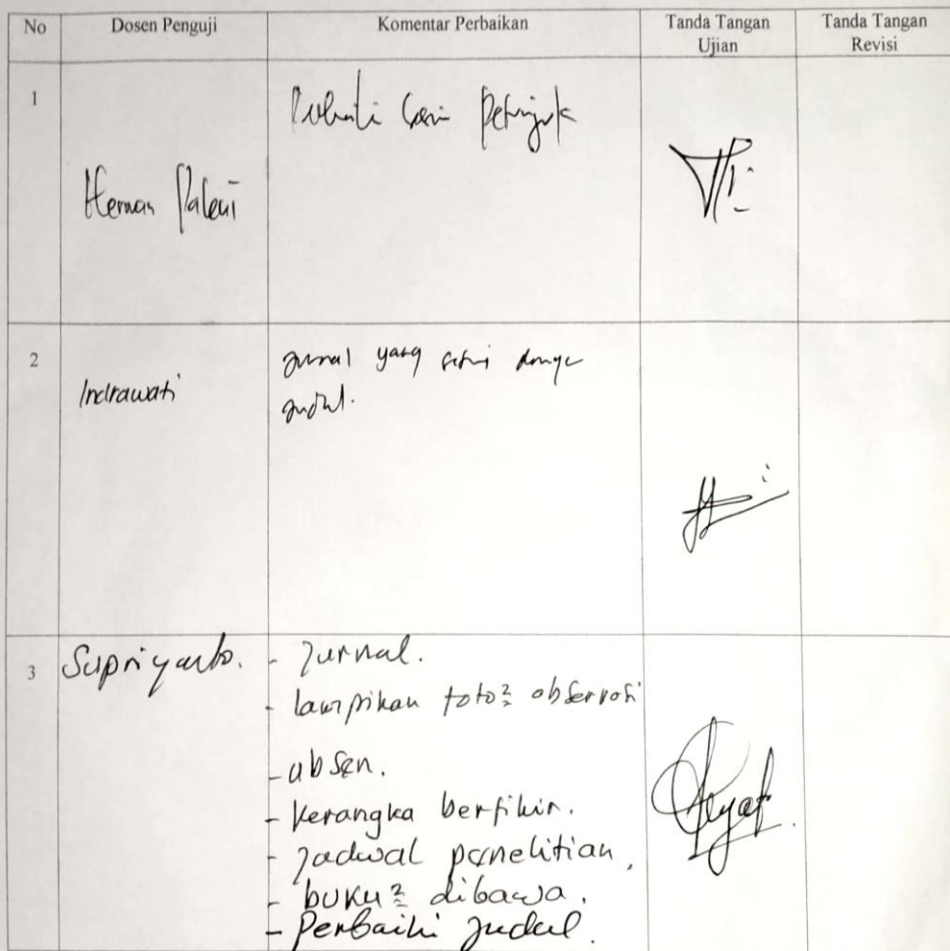 No Dosen Penguji Komentar Perbaikan Tanda Tangan Ujian Tanda Tangan Revisi
1
Herman Paleni
petunjuk
2
Indrawati
yang
judul.
3
Supriyanto.
- Jurnal.
- lampirkan foto2 observasi
- absen.
- Kerangka berfikir.
- Jadwal penelitian,
- buku2 dibawa.
- Perbaiki judul.